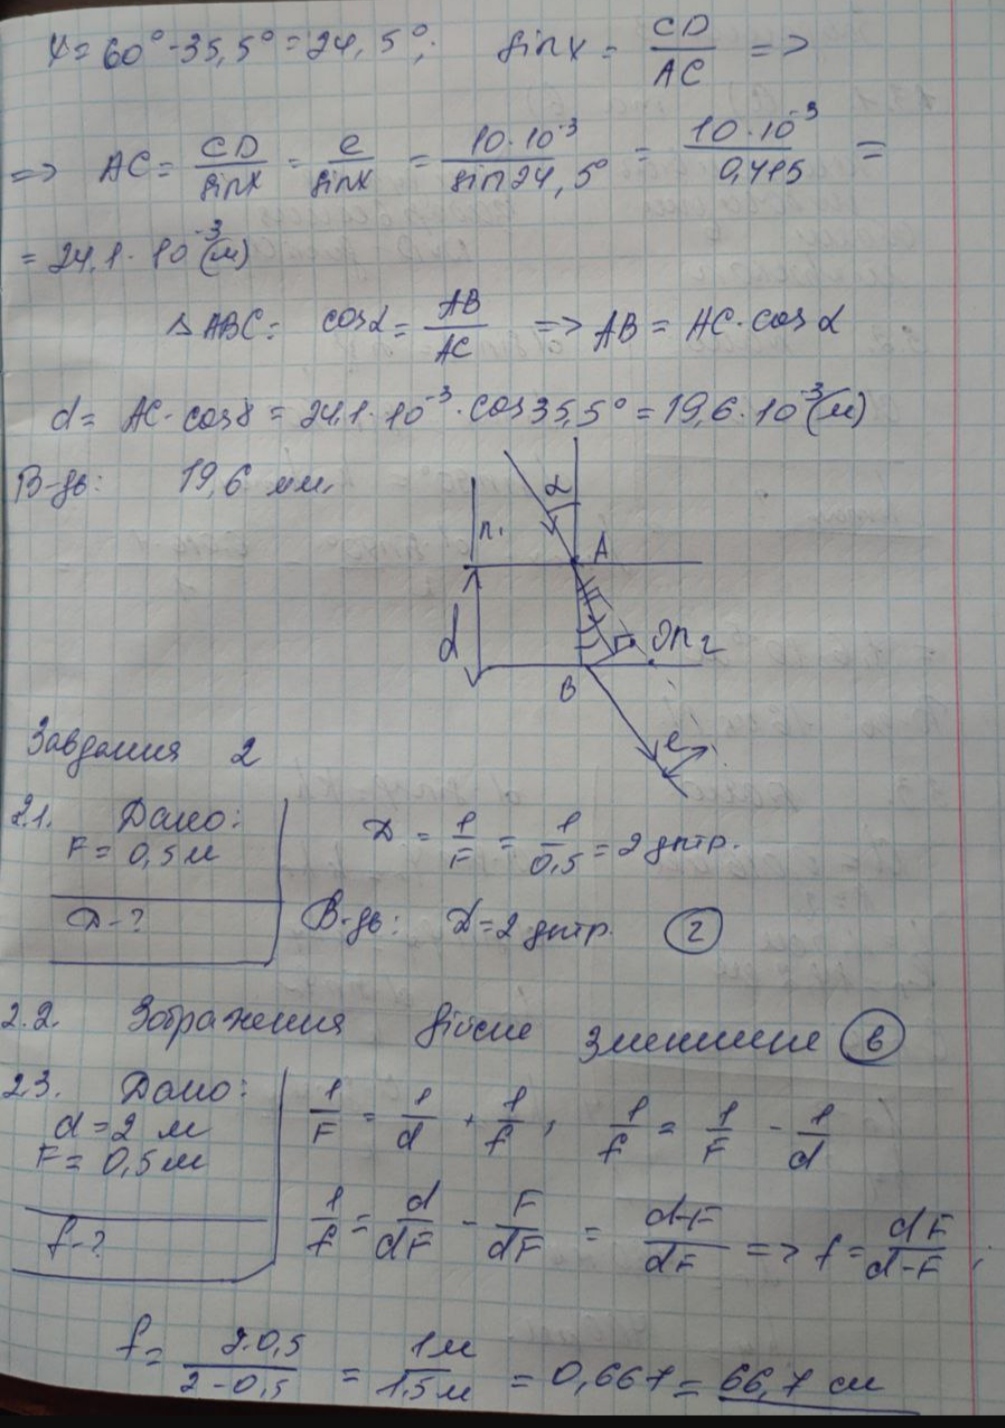 γ = 60° - 35,5° = 24,5°; sin γ = CD/AC =>
=> AC = CD/sin γ = e/sin γ = 10·10⁻³/sin 24,5° = 10·10⁻³/0,415 =
= 24,1·10⁻³ (м)
△ABC: cos α = AB/AC => AB = AC·cos α
d = AC·cos γ = 24,1·10⁻³·cos 35,5° = 19,6·10⁻³ (м)
В-дь: 19,6 мм.
α
n₁
A
d
D n₂
B
e
Завдання 2
2.1. Дано:
F = 0,5 м
D - ?
D = 1/F = 1/0,5 = 2 дптр.
В-дь: D = 2 дптр. (2)
2.2. Зображення дійсне зменшене (б)
2.3. Дано:
d = 2 м
F = 0,5 м
f - ?
1/F = 1/d + 1/f ; 1/f = 1/F - 1/d
1/f = d/dF - F/dF = d-F/dF => f = dF/d-F ;
f = 2·0,5/2-0,5 = 1м/1,5м = 0,667 = 66,7 см